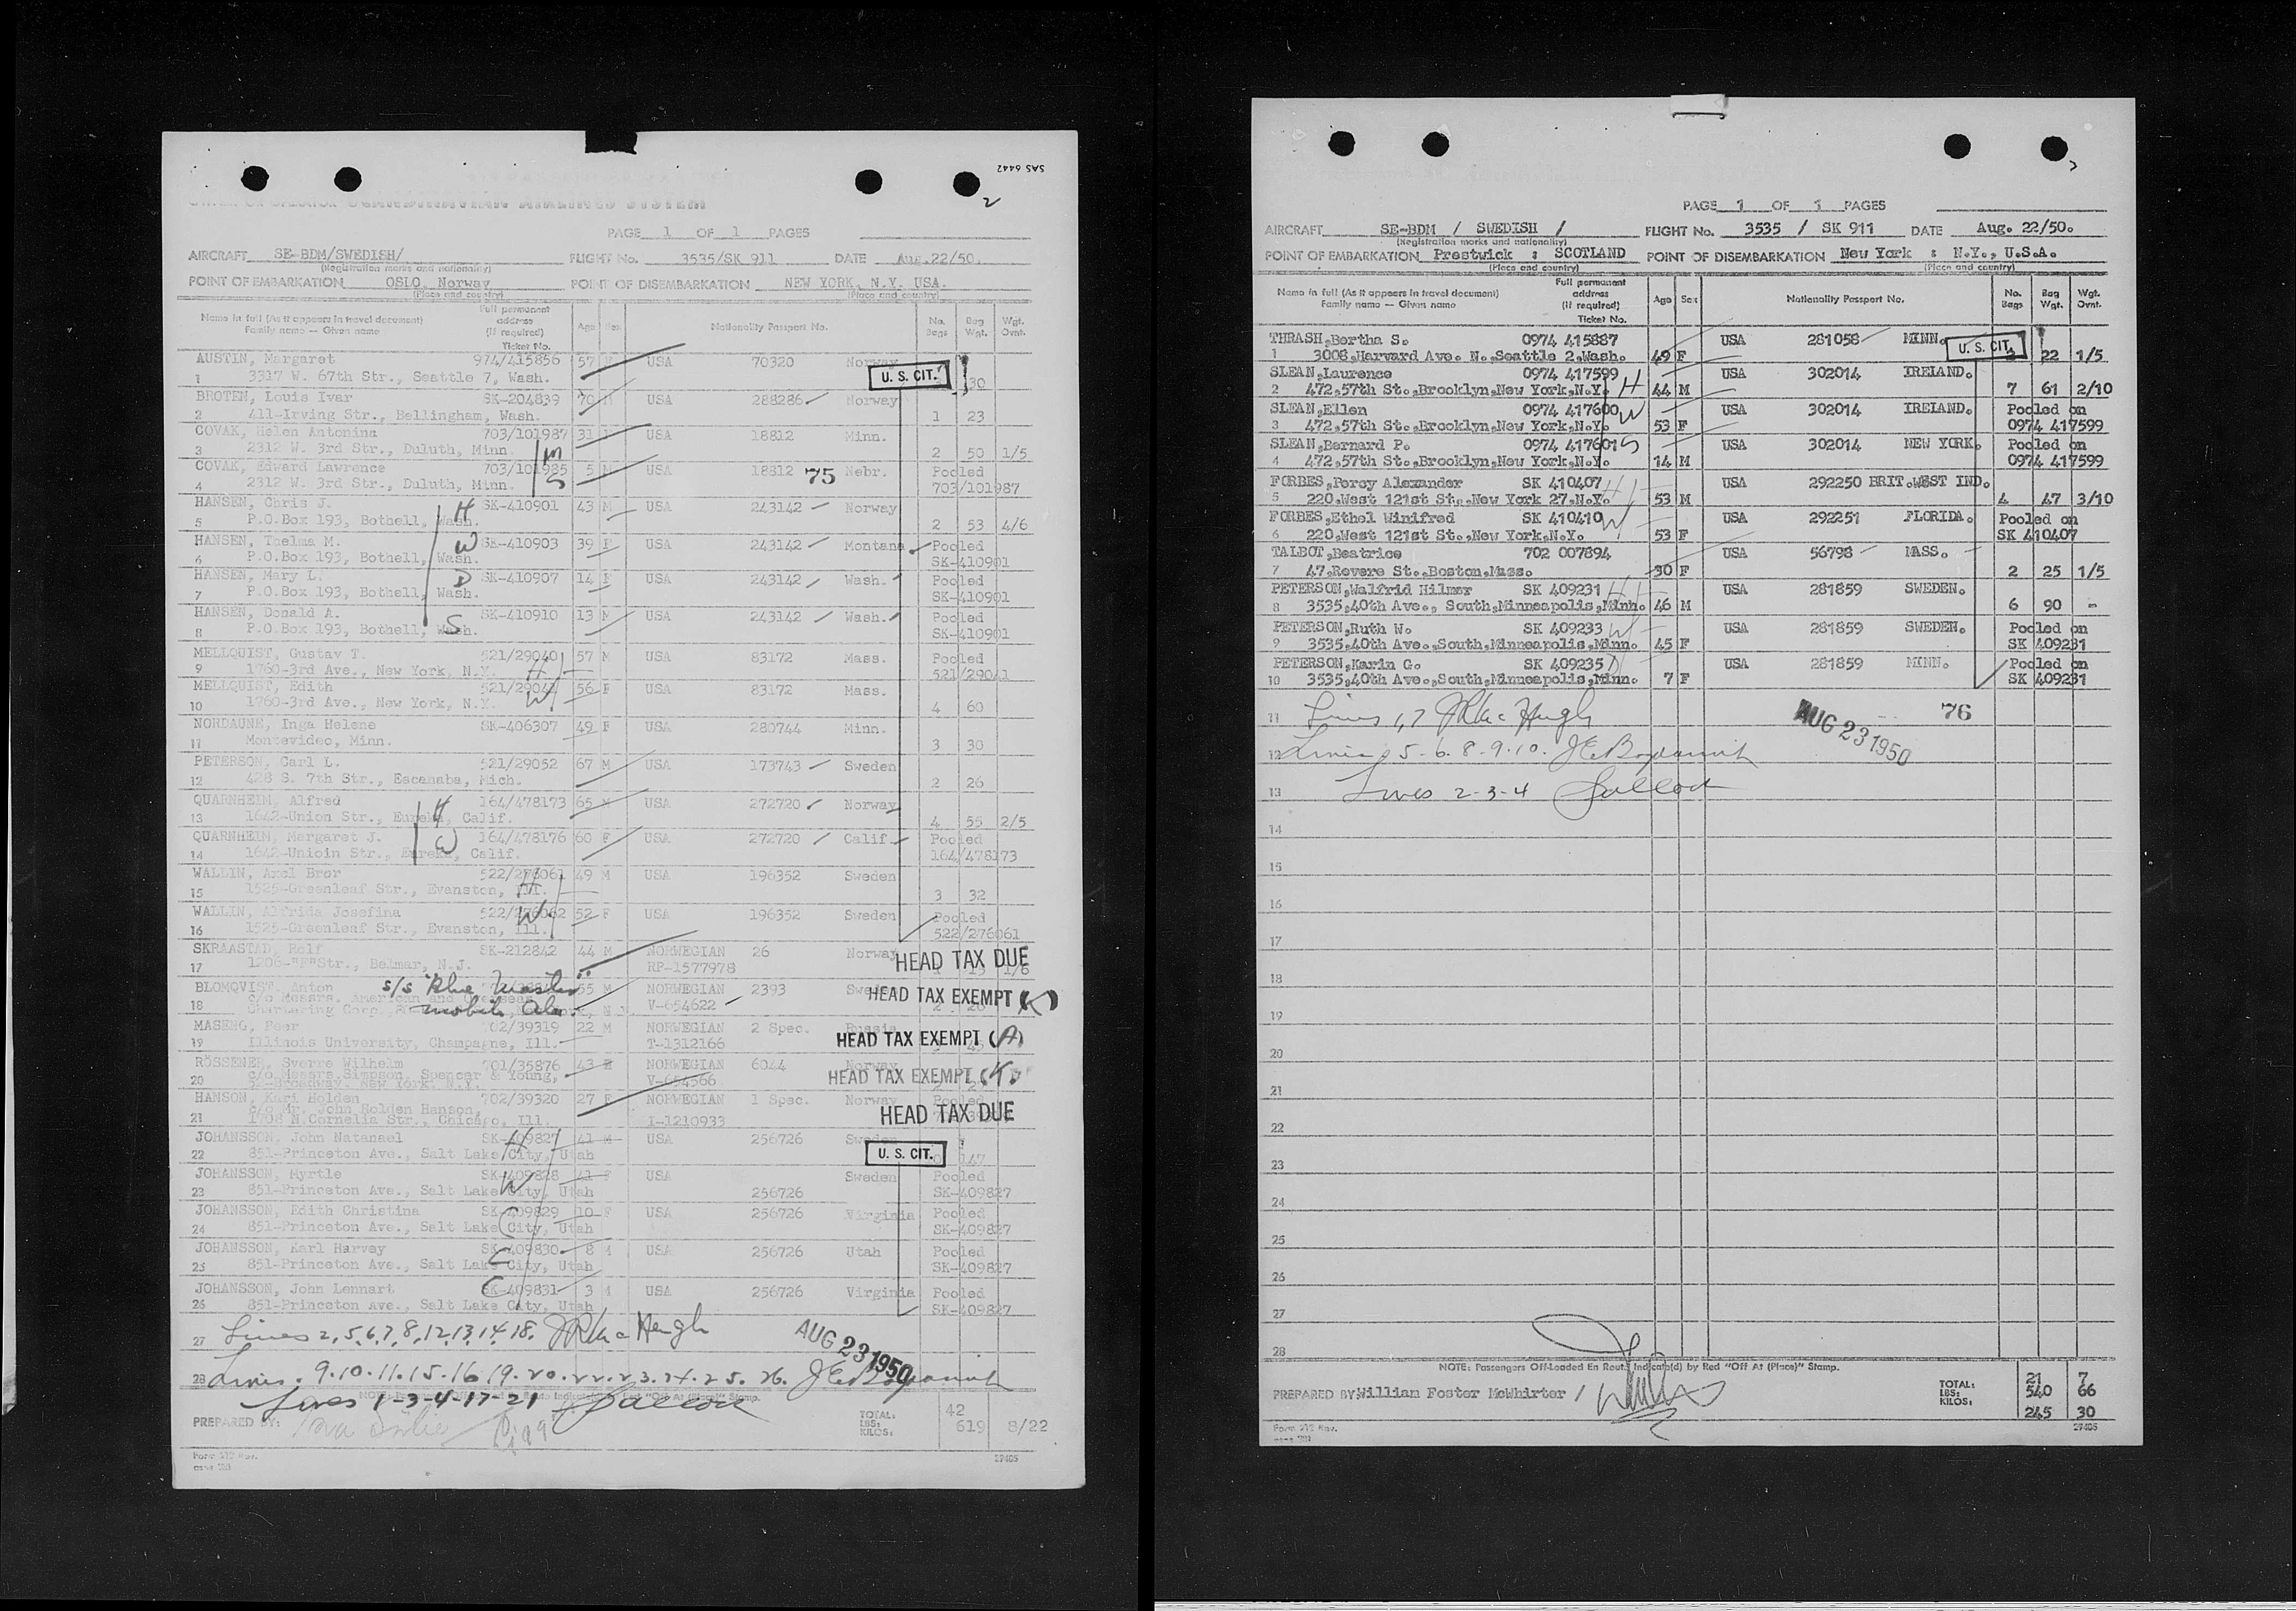 SAS 6442
2
SCANDINAVIAN AIRLINES SYSTEM
PAGE 1 OF 1 PAGES
AIRCRAFT SE-BDM/SWEDISH/ FLIGHT No. 3535/SK 911 DATE Aug.22/50.
(Registration marks and nationality)
POINT OF EMBARKATION OSLO, Norway POINT OF DISEMBARKATION NEW YORK, N.Y. USA.
(Place and country) (Place and country)
Name in full (As it appears in travel document) Family name — Given name Full permanent address (if required) Ticket No. Age Sex Nationality Passport No. No. Bags Bag Wgt. Wgt. Ovnt.
AUSTIN, Margaret 974/415856 57 F USA 70320 Norway
1 3317 W. 67th Str., Seattle 7, Wash. U. S. CIT. 30
BROTEN, Louis Ivar SK-204839 70 M USA 288286 Norway
2 411-Irving Str., Bellingham, Wash. 1 23
COVAK, Helen Antonina 703/101987 31 F USA 18812 Minn.
3 2312 W. 3rd Str., Duluth, Minn. M 2 50 1/5
COVAK, Edward Lawrence 703/101985 5 M USA 18812 75 Nebr. Pooled
4 2312 W. 3rd Str., Duluth, Minn. S 703/101987
HANSEN, Chris J. H SK-410901 43 M USA 243142 Norway
5 P.O.Box 193, Bothell, Wash. 2 53 4/6
HANSEN, Thelma M. W SK-410903 39 F USA 243142 Montana Pooled
6 P.O.Box 193, Bothell, Wash. SK-410901
HANSEN, Mary L. D SK-410907 14 F USA 243142 Wash. Pooled
7 P.O.Box 193, Bothell, Wash. SK-410901
HANSEN, Donald A. SK-410910 13 M USA 243142 Wash. Pooled
8 P.O.Box 193, Bothell, Wash. S SK-410901
MELLQUIST, Gustav T. 521/29040 57 M USA 83172 Mass. Pooled
9 1760-3rd Ave., New York, N.Y. H 521/29041
MELLQUIST, Edith 521/29041 56 F USA 83172 Mass.
10 1760-3rd Ave., New York, N.Y. W 4 60
NORDAUNE, Inga Helene SK-406307 49 F USA 280744 Minn.
11 Montevideo, Minn. 3 30
PETERSON, Carl L. 521/29052 67 M USA 173743 Sweden
12 428 S. 7th Str., Escanaba, Mich. 2 26
QUARNHEIM, Alfred H 164/478173 65 M USA 272720 Norway
13 1642-Union Str., Eureka, Calif. 4 55 2/5
QUARNHEIM, Margaret J. W 164/478176 60 F USA 272720 Calif. Pooled
14 1642-Unioin Str., Eureka, Calif. 164/478173
WALLIN, Axel Bror 522/276061 49 M USA 196352 Sweden
15 1525-Greenleaf Str., Evanston, Ill. H 3 32
WALLIN, Alfrida Josefina 522/276062 52 F USA 196352 Sweden Pooled
16 1525-Greenleaf Str., Evanston, Ill. W 522/276061
SKRAASTAD, Rolf SK-212842 44 M NORWEGIAN 26 Norway
17 1206-"F"Str., Belmar, N.J. RP-1577978 HEAD TAX DUE 1/6
BLOMQVIST, Anton s/s "Blue Master" 55 M NORWEGIAN 2393
18 c/o Messrs. American and Overseas Chartering Corp. Mobile Ala. V-654622 HEAD TAX EXEMPT (K)
MASENG, Peer 702/39319 22 M NORWEGIAN 2 Spec. Russia
19 Illinois University, Champagne, Ill. T-1312166 HEAD TAX EXEMPT (A)
RÖSSENER, Sverre Wilhelm 701/35876 43 M NORWEGIAN 6044 Norway
20 c/o Messrs Simpson, Spencer & Young, 52-Broadway, New York, N.Y. V-654566 HEAD TAX EXEMPT (K)
HANSON, Kari Holden 702/39320 27 F NORWEGIAN 1 Spec. Norway Pooled
21 c/o Mr. John Holden Hanson, 1708 N.Cornelia Str., Chicago, Ill. I-1210933 HEAD TAX DUE
JOHANSSON, John Natanael SK-409827 41 M USA 256726 Sweden
22 851-Princeton Ave., Salt Lake City, Utah H U. S. CIT. 147
JOHANSSON, Myrtle SK-409828 41 F USA Sweden Pooled
23 851-Princeton Ave., Salt Lake City, Utah W 256726 SK-409827
JOHANSSON, Edith Christina SK-409829 10 F USA 256726 Virginia Pooled
24 851-Princeton Ave., Salt Lake City, Utah C SK-409827
JOHANSSON, Karl Harvey SK-409830 8 M USA 256726 Utah Pooled
25 851-Princeton Ave., Salt Lake City, Utah C SK-409827
JOHANSSON, John Lennart C SK-409831 3 M USA 256726 Virginia Pooled
26 851-Princeton Ave., Salt Lake City, Utah SK-409827
27 Lines 2,5,6,7,8,12,13,14,18. JR MacHugh AUG 23 1950
28 Lines. 9.10.11.15.16.19.20.22.23.24.25.26.
Lines 1-3-4-17-21
PREPARED BY: TOTAL: LBS: KILOS: 42 619 8/22
Form 217 Rev.
27405
PAGE 1 OF 1 PAGES
AIRCRAFT SE-BDM / SWEDISH / FLIGHT No. 3535 / SK 911 DATE Aug. 22/50.
(Registration marks and nationality)
POINT OF EMBARKATION Prestwick : SCOTLAND POINT OF DISEMBARKATION New York : N.Y., U.S.A.
(Place and country) (Place and country)
Name in full (As it appears in travel document) Family name — Given name Full permanent address (if required) Ticket No. Age Sex Nationality Passport No. No. Bags Bag Wgt. Wgt. Ovnt.
THRASH,Bertha S. 0974 415887 USA 281058 MINN.
1 3008,Harvard Ave. N.,Seattle 2,Wash. 49 F U. S. CIT. 22 1/5
SLEAN,Laurence 0974 417599 USA 302014 IRELAND.
2 472,57th St.,Brooklyn,New York,N.Y. H 44 M 7 61 2/10
SLEAN,Ellen 0974 417600 W USA 302014 IRELAND. Pooled on
3 472,57th St.,Brooklyn,New York,N.Y. 53 F 0974 417599
SLEAN,Bernard P. 0974 417601 S USA 302014 NEW YORK. Pooled on
4 472,57th St.,Brooklyn,New York,N.Y. 14 M 0974 417599
FORBES,Percy Alexander SK 410407 H USA 292250 BRIT.WEST IND.
5 220,West 121st St.,New York 27,N.Y. 53 M 4 47 3/10
FORBES,Ethel Winifred SK 410410 W USA 292251 FLORIDA. Pooled on
6 220,West 121st St.,New York,N.Y. 53 F SK 410407
TALBOT,Beatrice 702 007894 USA 56798 MASS.
7 47,Revere St.,Boston,Mass. 30 F 2 25 1/5
PETERSON,Walfrid Hilmer SK 409231 H USA 281859 SWEDEN.
8 3535,40th Ave., South,Minneapolis,Minn. 46 M 6 90 -
PETERSON,Ruth W. SK 409233 W USA 281859 SWEDEN. Pooled on
9 3535,40th Ave.,South,Minneapolis,Minn. 45 F SK 409231
PETERSON,Karin G. SK 409235 D USA 281859 MINN. Pooled on
10 3535,40th Ave.,South,Minneapolis,Minn. 7 F SK 409231
11 Lines 1,7 JR MacHugh AUG 23 1950 76
12 Lines 5-6.8-9-10.
13 Lines 2-3-4
14
15
16
17
18
19
20
21
22
23
24
25
26
27
28
NOTE: Passengers Off-Loaded En Route Indicated by Red "Off At (Place)" Stamp.
PREPARED BY: William Foster McWhirter / TOTAL: 21 7
LBS: 540 66
KILOS: 245 30
Form 217 Rev.
27405